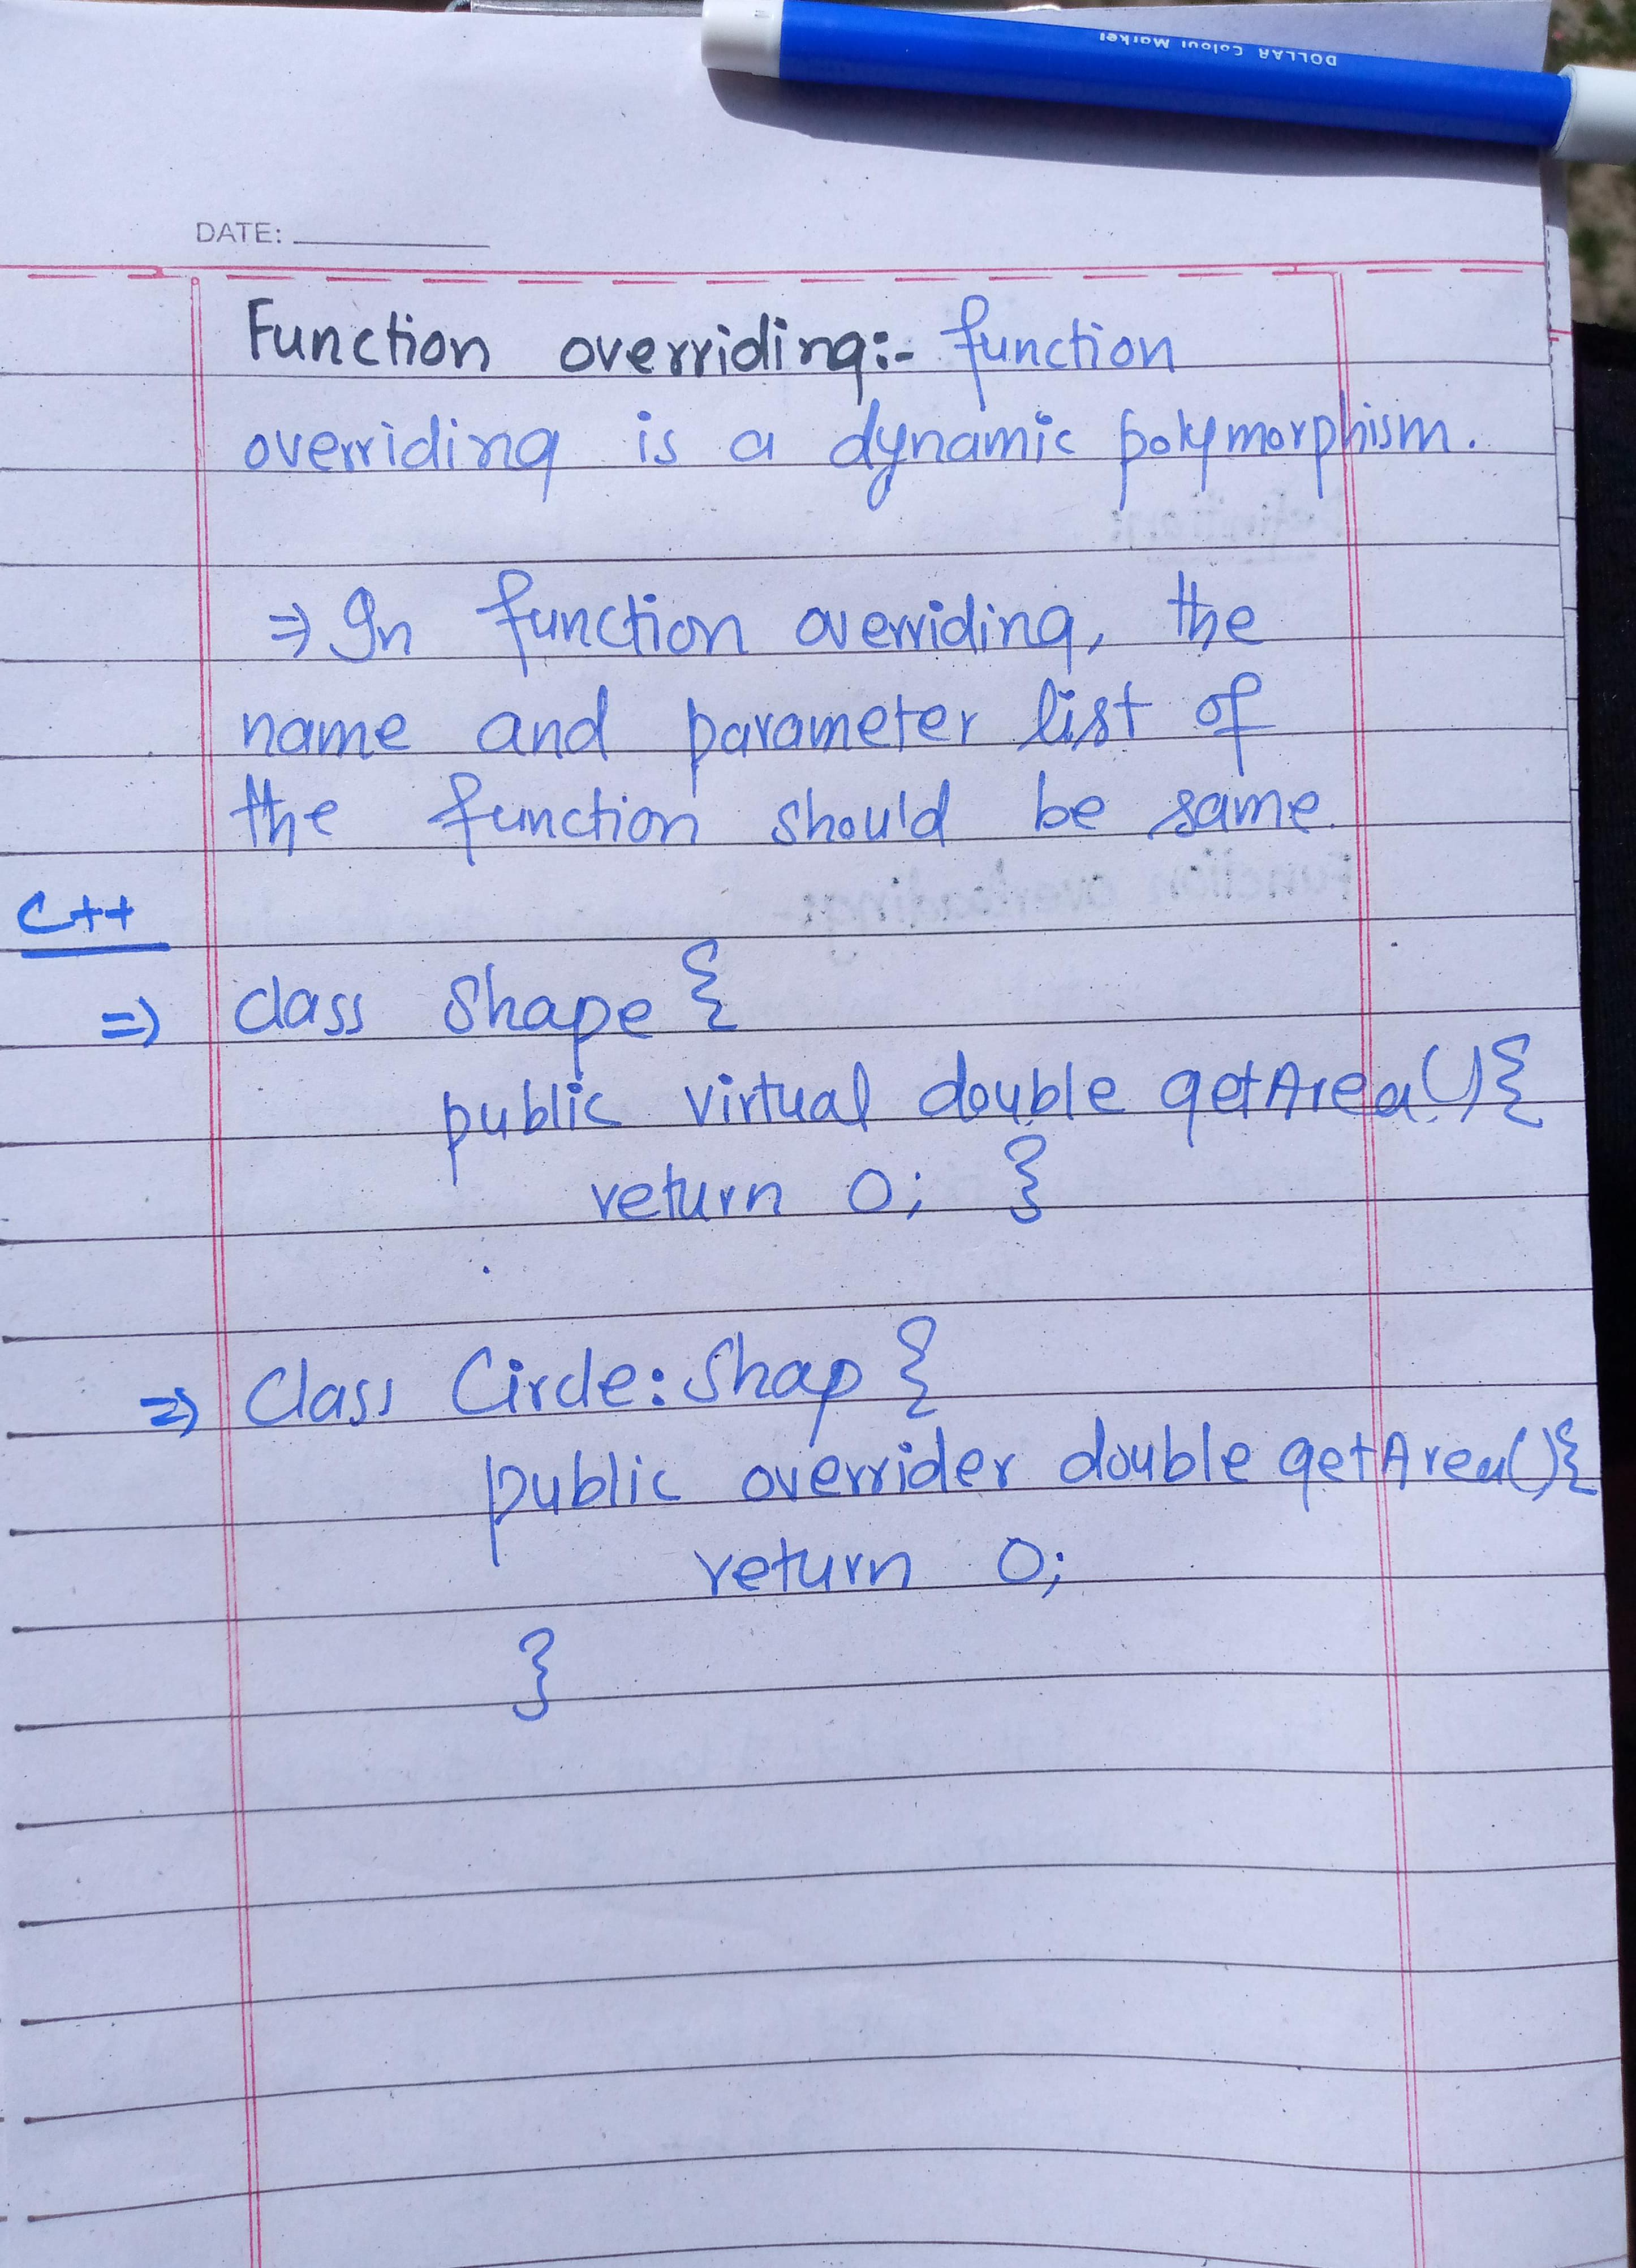 DOLLAR Colour Marker
DATE:
Function overriding:- function
overriding is a dynamic polymorphism.
⇒ In function overriding, the
name and parameter list of
the function should be same.
C++
⇒ class Shape {
public virtual double getArea(){
return 0; }
⇒ Class Circle:Shap {
public overrider double getArea(){
return 0;
}